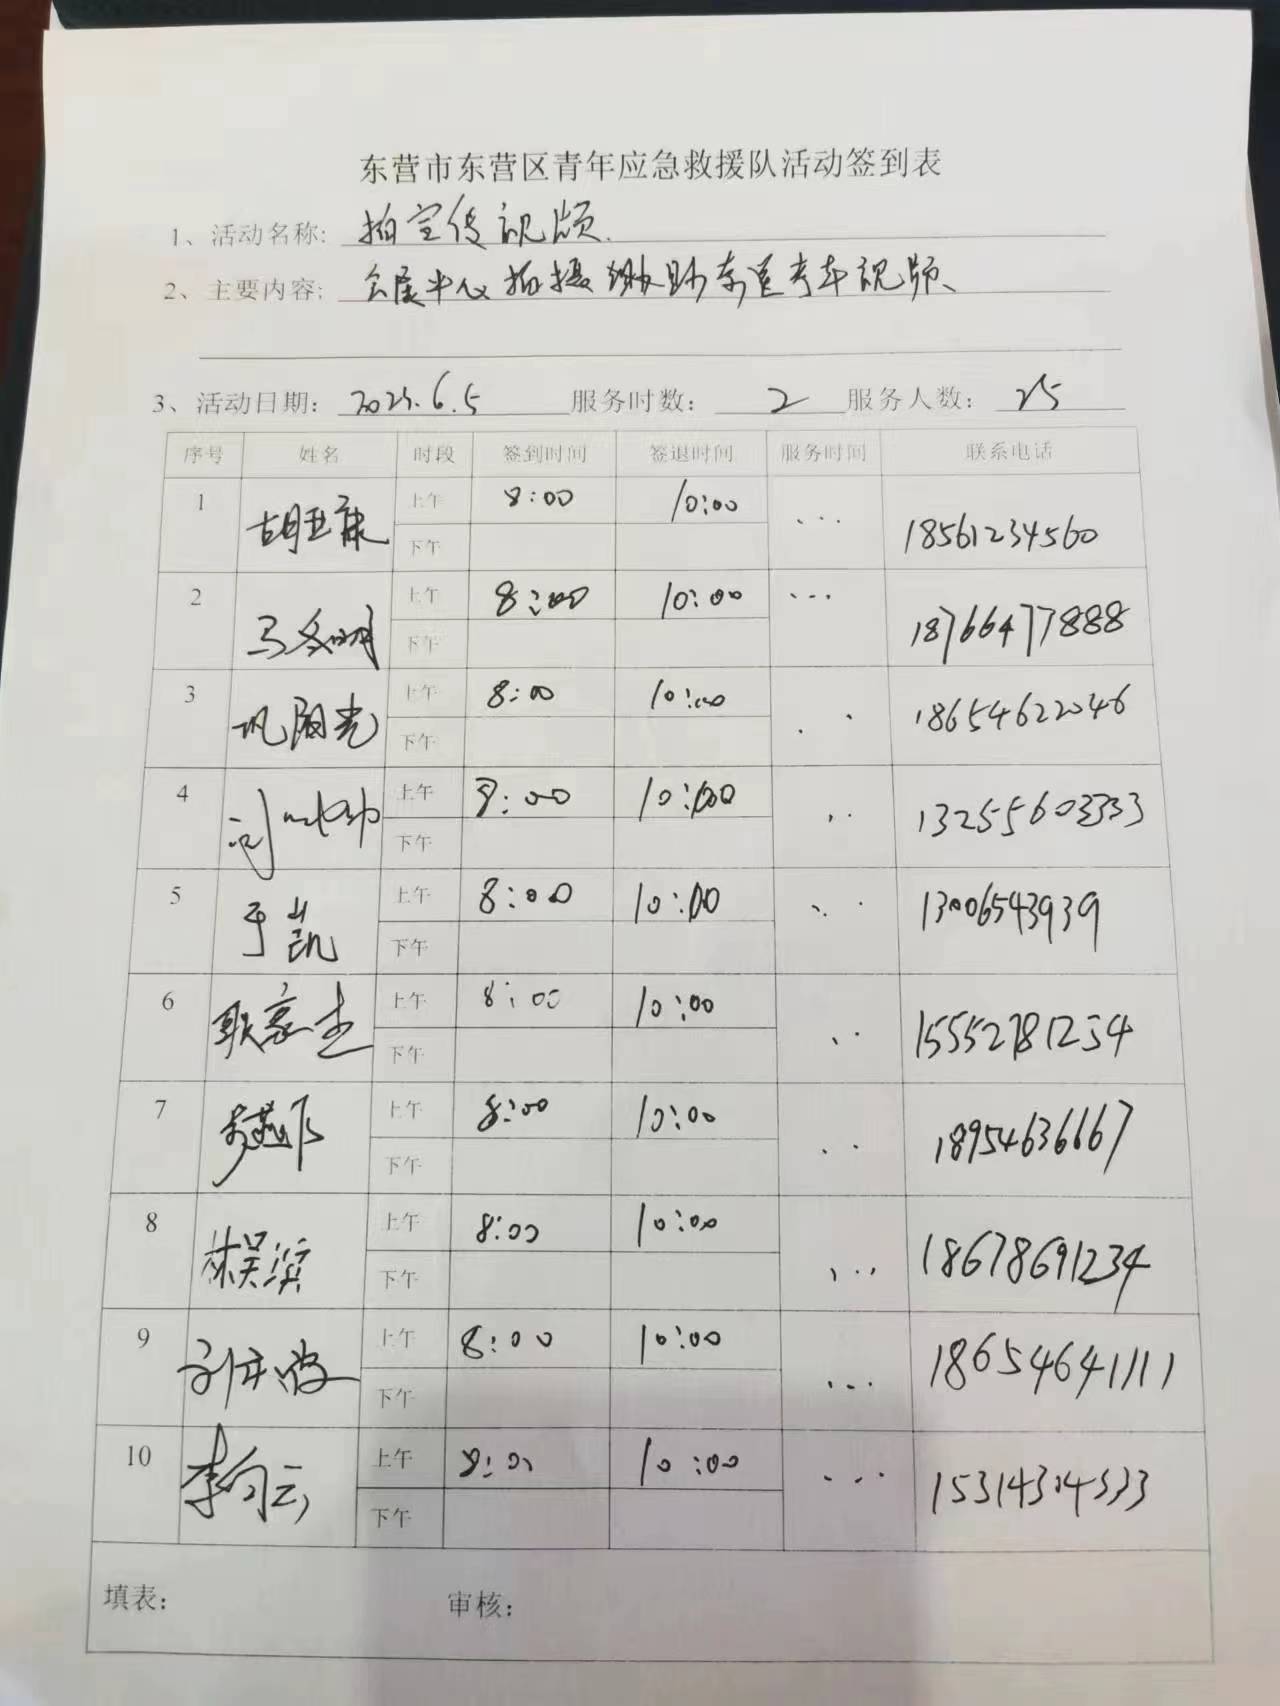 东营市东营区青年应急救援队活动签到表
1、活动名称: 拍宣传视频.
2、主要内容: 会展中心拍摄 视频、
3、活动日期: 2025.6.5 服务时数: 2 服务人数: 25
序号 姓名 时段 签到时间 签退时间 服务时间 联系电话
1 胡亚康 上午 8:00 10:00 ... 18561234560
下午
2 马冬明 上午 8:00 10:00 ... 18766477888
下午
3 巩阳光 上午 8:00 10:00 .. 18654622046
下午
4 刘 上午 8:00 10:00 .. 13255603333
下午
5 于凯 上午 8:00 10:00 ... 13006543939
下午
6 耿家杰 上午 8:00 10:00 .. 15552781234
下午
7 上午 8:00 10:00 .. 18954636667
下午
8 林吴滨 上午 8:00 10:00 ... 18678691234
下午
9 上午 8:00 10:00 ... 18654641111
下午
10 李向云 上午 8:00 10:00 ... 15314304333
下午
填表: 审核: